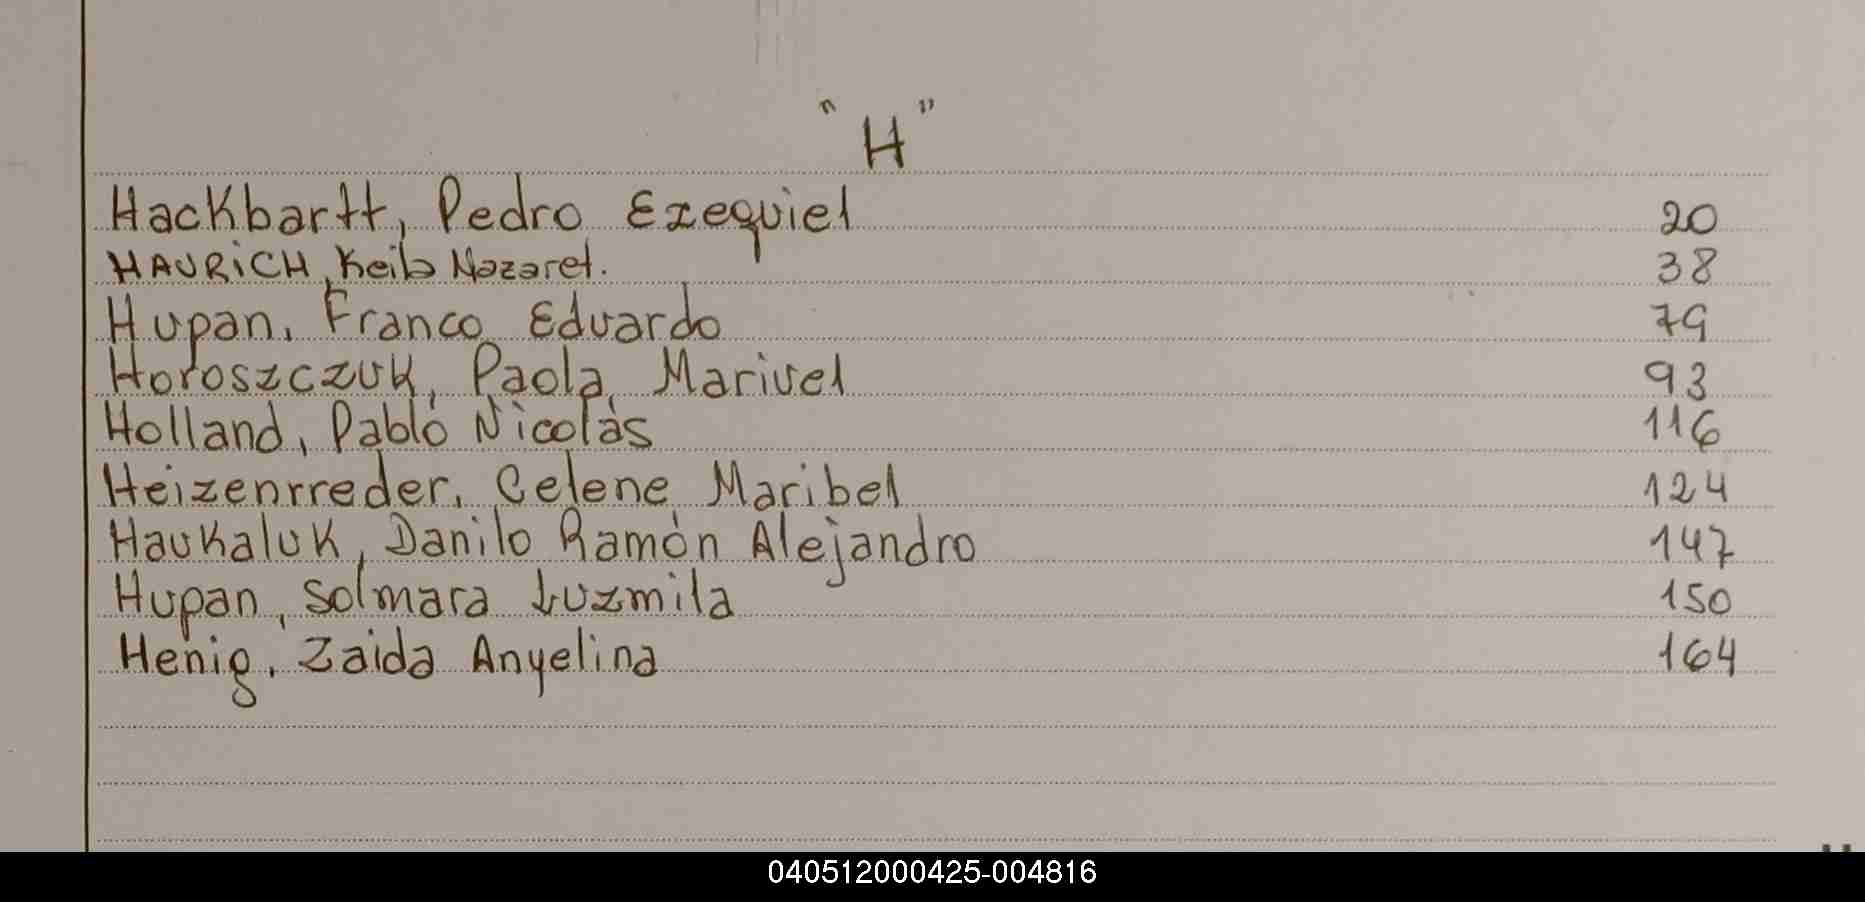 "H"
Hackbartt, Pedro Ezequiel 20
HAURiCH, Keila Nazaret. 38
Hupan, Franco Eduardo 79
Horoszczuk, Paola Marivel 93
Holland, Pablo Nicolás 116
Heizenrreder, Celene Maribel 124
Haukaluk, Danilo Ramón Alejandro 147
Hupan, Solmara Luzmila 150
Henig, Zaida Anyelina 164
040512000425-004816